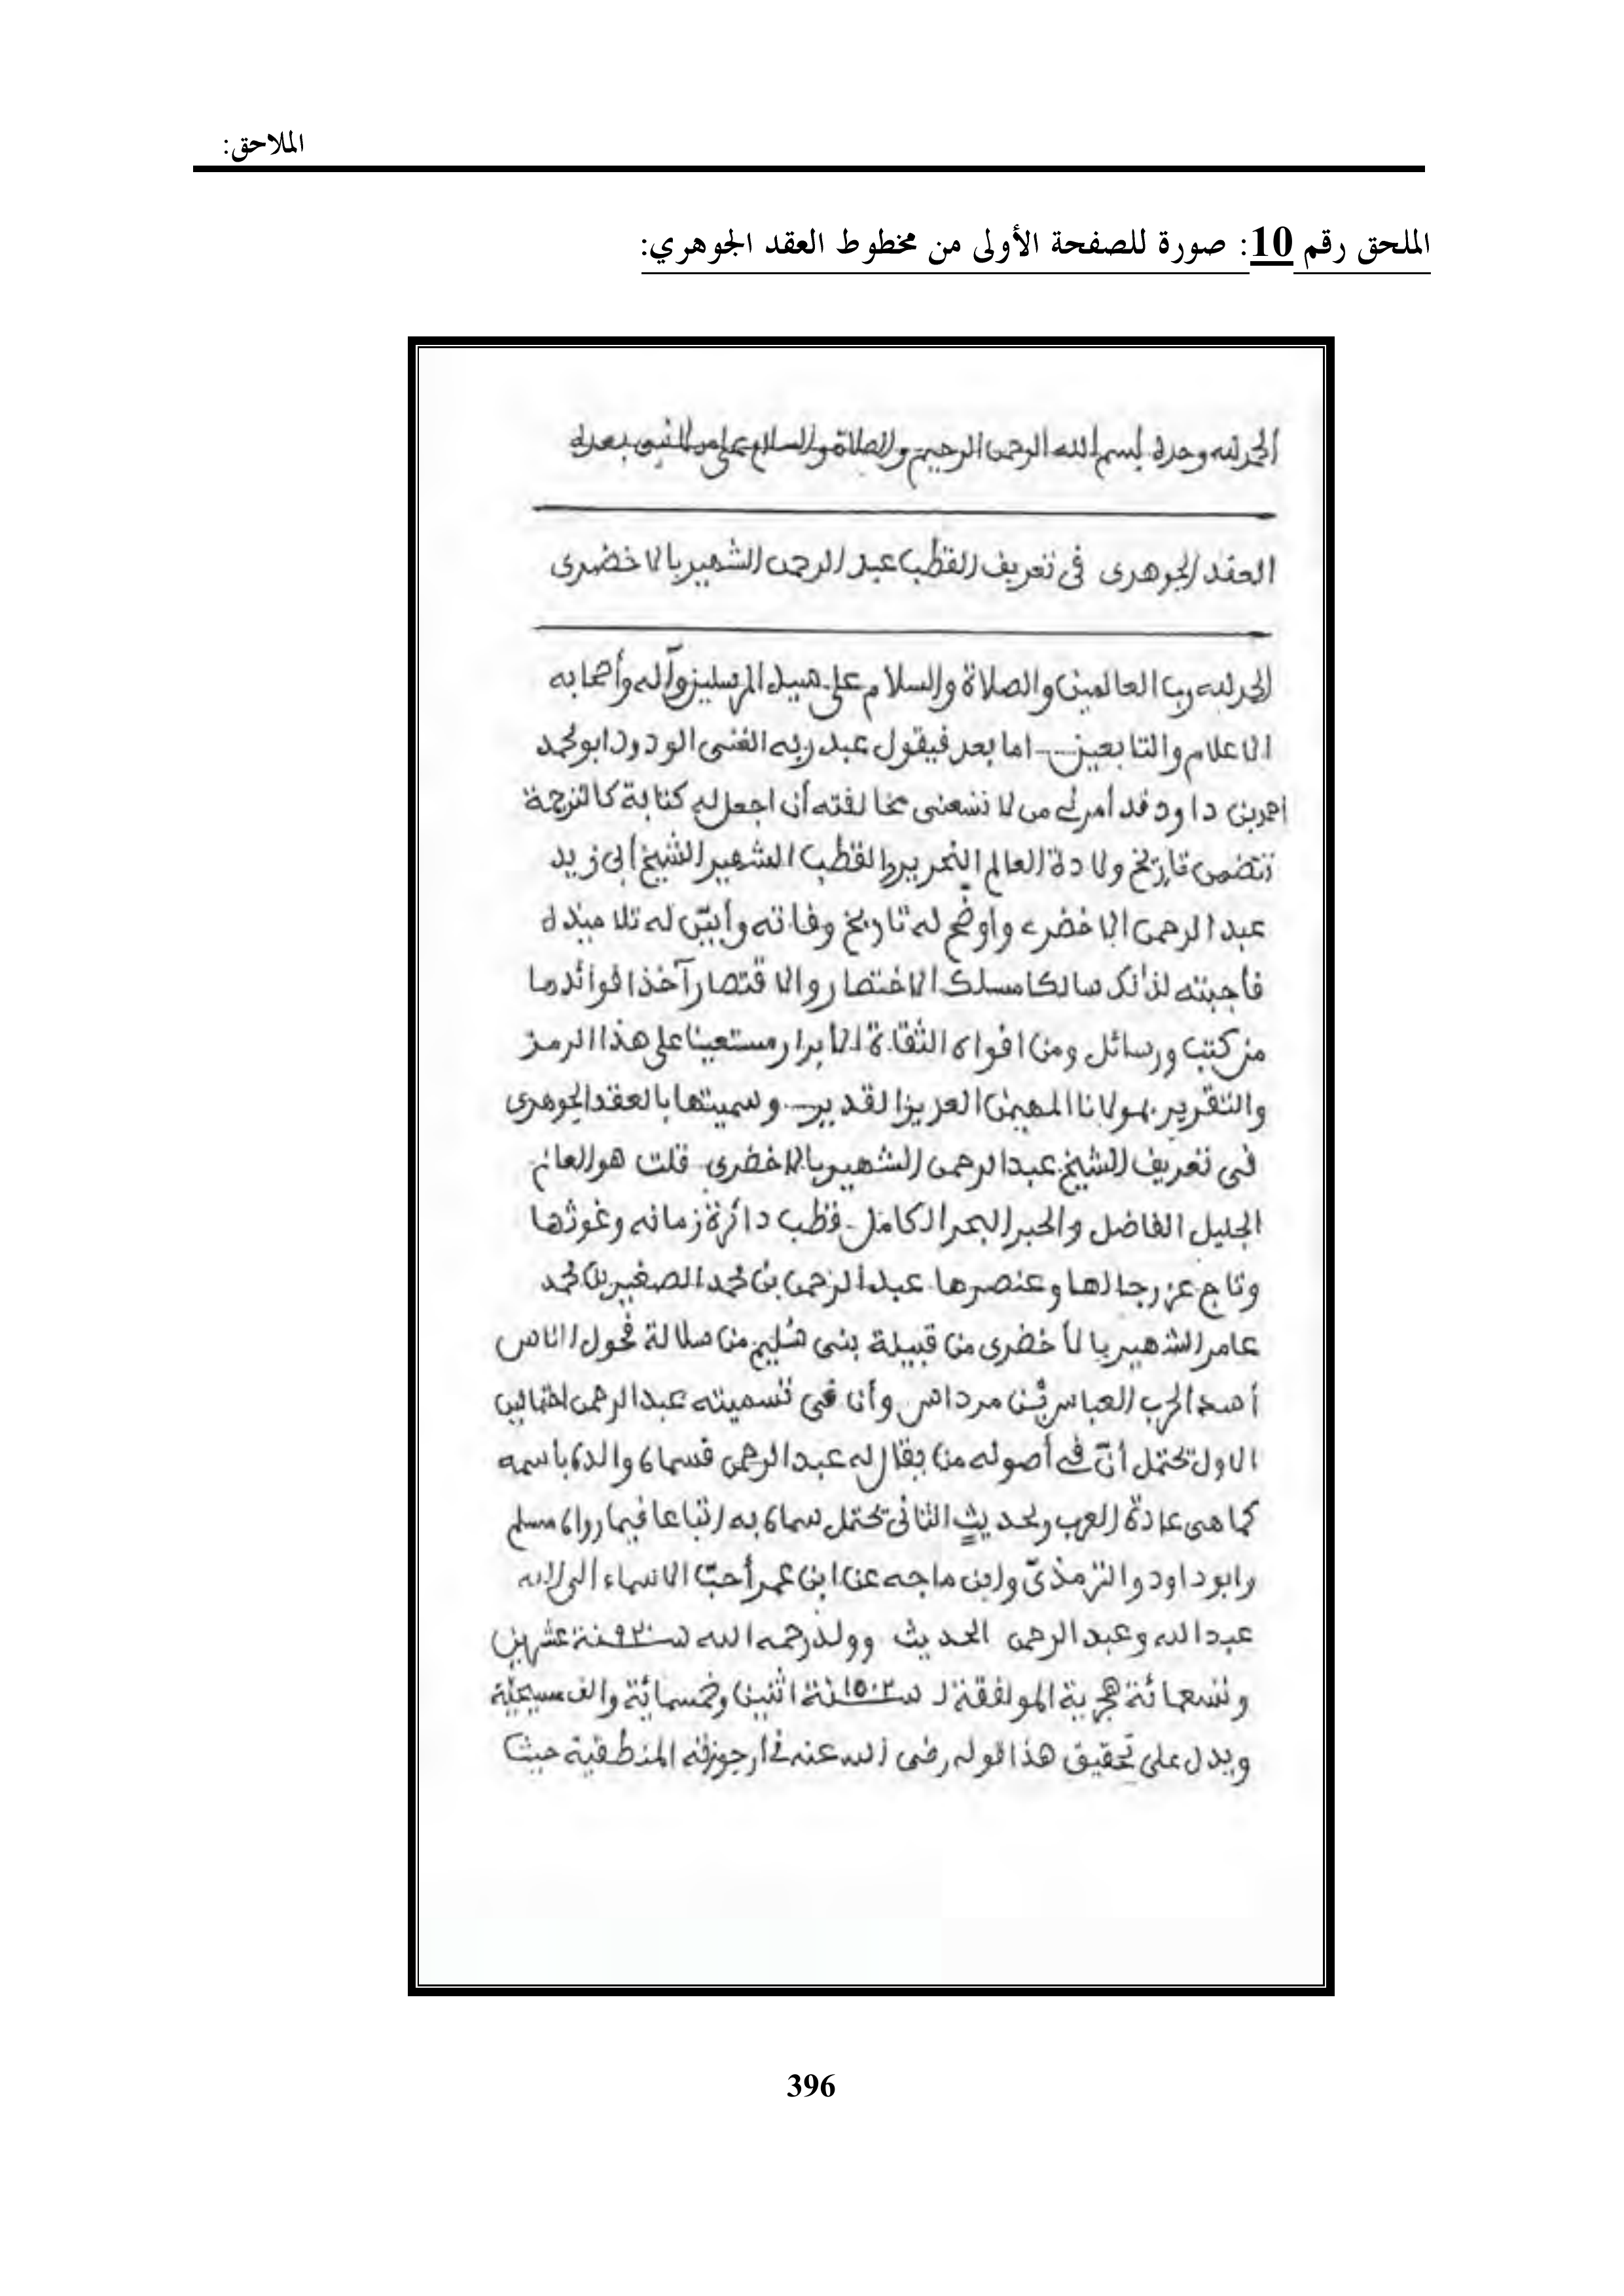 الملاحق:
الملحق رقم 10: صورة للصفحة الأولى من مخطوط العقد الجوهري:
الحمد لله وحده بسم الله الرحمن الرحيم والصلاة والسلام على من لا نبي بعده
العقد الجوهرى فى تعريف القطب عبد الرحمن الشهير بالاخضرى
الحمد لله رب العالمين والصلاة والسلام على سيد المرسلين وآله وأصحابه
الاعلام والتابعين اما بعد فيقول عبد ربه الغنى الودود ابو محمد
احمد بن داود قد أمرنى من لا تسعنى مخالفته أن اجعل له كتابة كالترجمة
تتضمن تاريخ ولادة العالم النحرير والقطب الشهير الشيخ أبى زيد
عبد الرحمن الاخضرى واوضح له تاريخ وفاته وأبيّن له تلاميذه
فأجبته لذلك سالكا مسلك الاختصار والاقتصار آخذا فوائدها
من كتب ورسائل ومن افواه الثقاة الأبرار مستعينا على هذا الرمز
والتقرير بمولانا المهيمن العزيز القدير وسميتها بالعقد الجوهرى
فى تعريف الشيخ عبد الرحمن الشهير بالاخضرى قلت هو العالم
الجليل الفاضل والحبر البحر الكامل قطب دائرة زمانه وغوثها
وتاج عز رجالها وعنصرها عبد الرحمن بن محمد الصغير بن محمد
عامر الشهير بالأخضرى من قبيلة بنى سُليم من سلالة فحول الناس
أسد الحرب العباس بن مرداس وأن فى تسميته عبد الرحمن احتمالين
الاول تحتمل أنّ في أصوله من يقال له عبد الرحمن فسماه والده باسمه
كما هى عادة العرب ولحديثٍ الثانى تحتمل سماه به اتباعا فيما رواه مسلم
وابو داود والترمذىّ وابن ماجه عن ابن عمر أحبّ الاسماء الى الله
عبد الله وعبد الرحمن الحديث وولد رحمه الله سنة ٩٢٠ عشرين
وتسعمائة هجرية الموافقة لـ سنة ١٥٠٢ اثنين وخمسمائة والف مسيحيّة
ويدل على تحقيق هذا قوله رضى الله عنه في أرجوزته المنطقية حيث
396